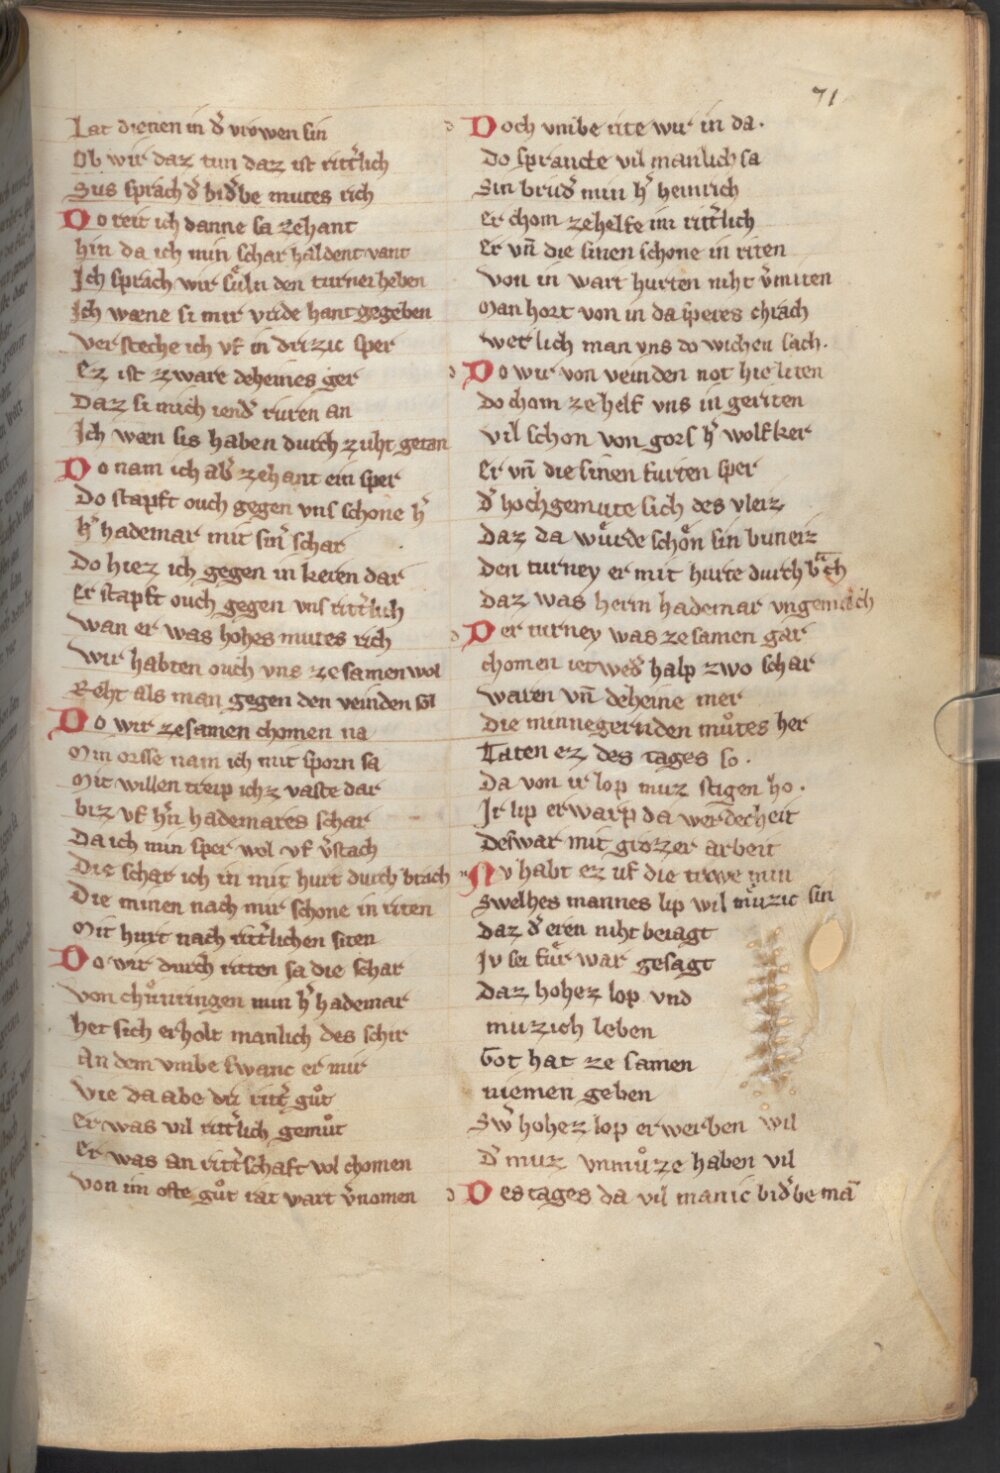 71
Lat dienen in d̾ vrowen sin
Ob wir daz tun daz ist ritt̾lich
Sus sprach d̾ bid̾be mutes rich
Do reit ich danne sa zehant
hin da ich min schar haldent vant
Jch sprach wir suͤln den turnei heben
Jch wæne si mir vride hant gegeben
Versteche ich vf in drizic sper
Ez ist zware deheines ger
Daz si mich iend̾ ruren an
Jch wæn sis haben durch zuht getan
Do nam ich ab̾ zehant ein sper
Do stapft ouch gegen vns schone h̾
h̾ hademar mit sin̾ schar
Do hiez ich gegen in keren dar
Er stapft ouch gegen vns ritt̾lich
wan er was hohes mutes rich
Wir habten ouch vns zesamen wol
Reht als man gegen den veinden sol
Do wir zesamen chomen na
Min orsse nam ich mit sporn sa
Mit willen treip ichz vaste dar
biz vf h̾n hademares schar
Da ich min sper wol vf v̾stach
Die schar ich in mit hurt durch brach
Die minen nach mir schone in riten
Mit hurt nach ritt̾lichen siten
Do wir durch ritten sa die schar
von chuͦnringen min h̾ hademar
her sich erholt manlich des schir
An dem vmbe swanc er mir
vie da abe dri ritt̾ guͦt
Er was vil ritt̾lich gemuͦt
Er was an ritt̾schaft vol chomen
von im ofte guͦt tat wart v̾nomen
Doch vmbe rite wir in da.
Do sprancte vil manlich sa
Sin brud̾ min h̾ heinrich
er chom zehelfe im ritt̾lich
Er vn̄ die sinen schone in riten
Von in wart hurten niht v̾miten
Man hort von in da speres chrach
werlich man vns do wichen sach.
Do wir von veinden not hie liten
Do chom ze helf vns in geriten
vil schon von gors h̾ wolfker
Er vn̄ die sinen furten sper
d̾ hochgemute sich des vleiz
Daz da wuͤrde schoͤn sin buneiz
Den turney er mit hurte durch brach
Daz was herrn hademar vngemach
Der turney was ze samen gar
chomen ietwed̾ halp zwo schar
waren vn̄ deheine mer
Die minnegernden muͦtes her
Taten ez des tages so.
Da von ir lop muz stigen ho.
Jr lip erwarp da werdecheit
Deswar mit grozzer arbeit
Nv habt ez uf die trowe min
Swelhes mannes lip wil muͤzic sin
Daz d̾ eren niht beiagt
Jv sei fuͤr war gesagt
Daz hohez lop vnd
muzich leben
Got hat ze samen
niemen geben
Sw̾ hohez lop erwerben wil
d̾ muz vnmuͦze haben vil
Des tages da vil manic bid̾be mā